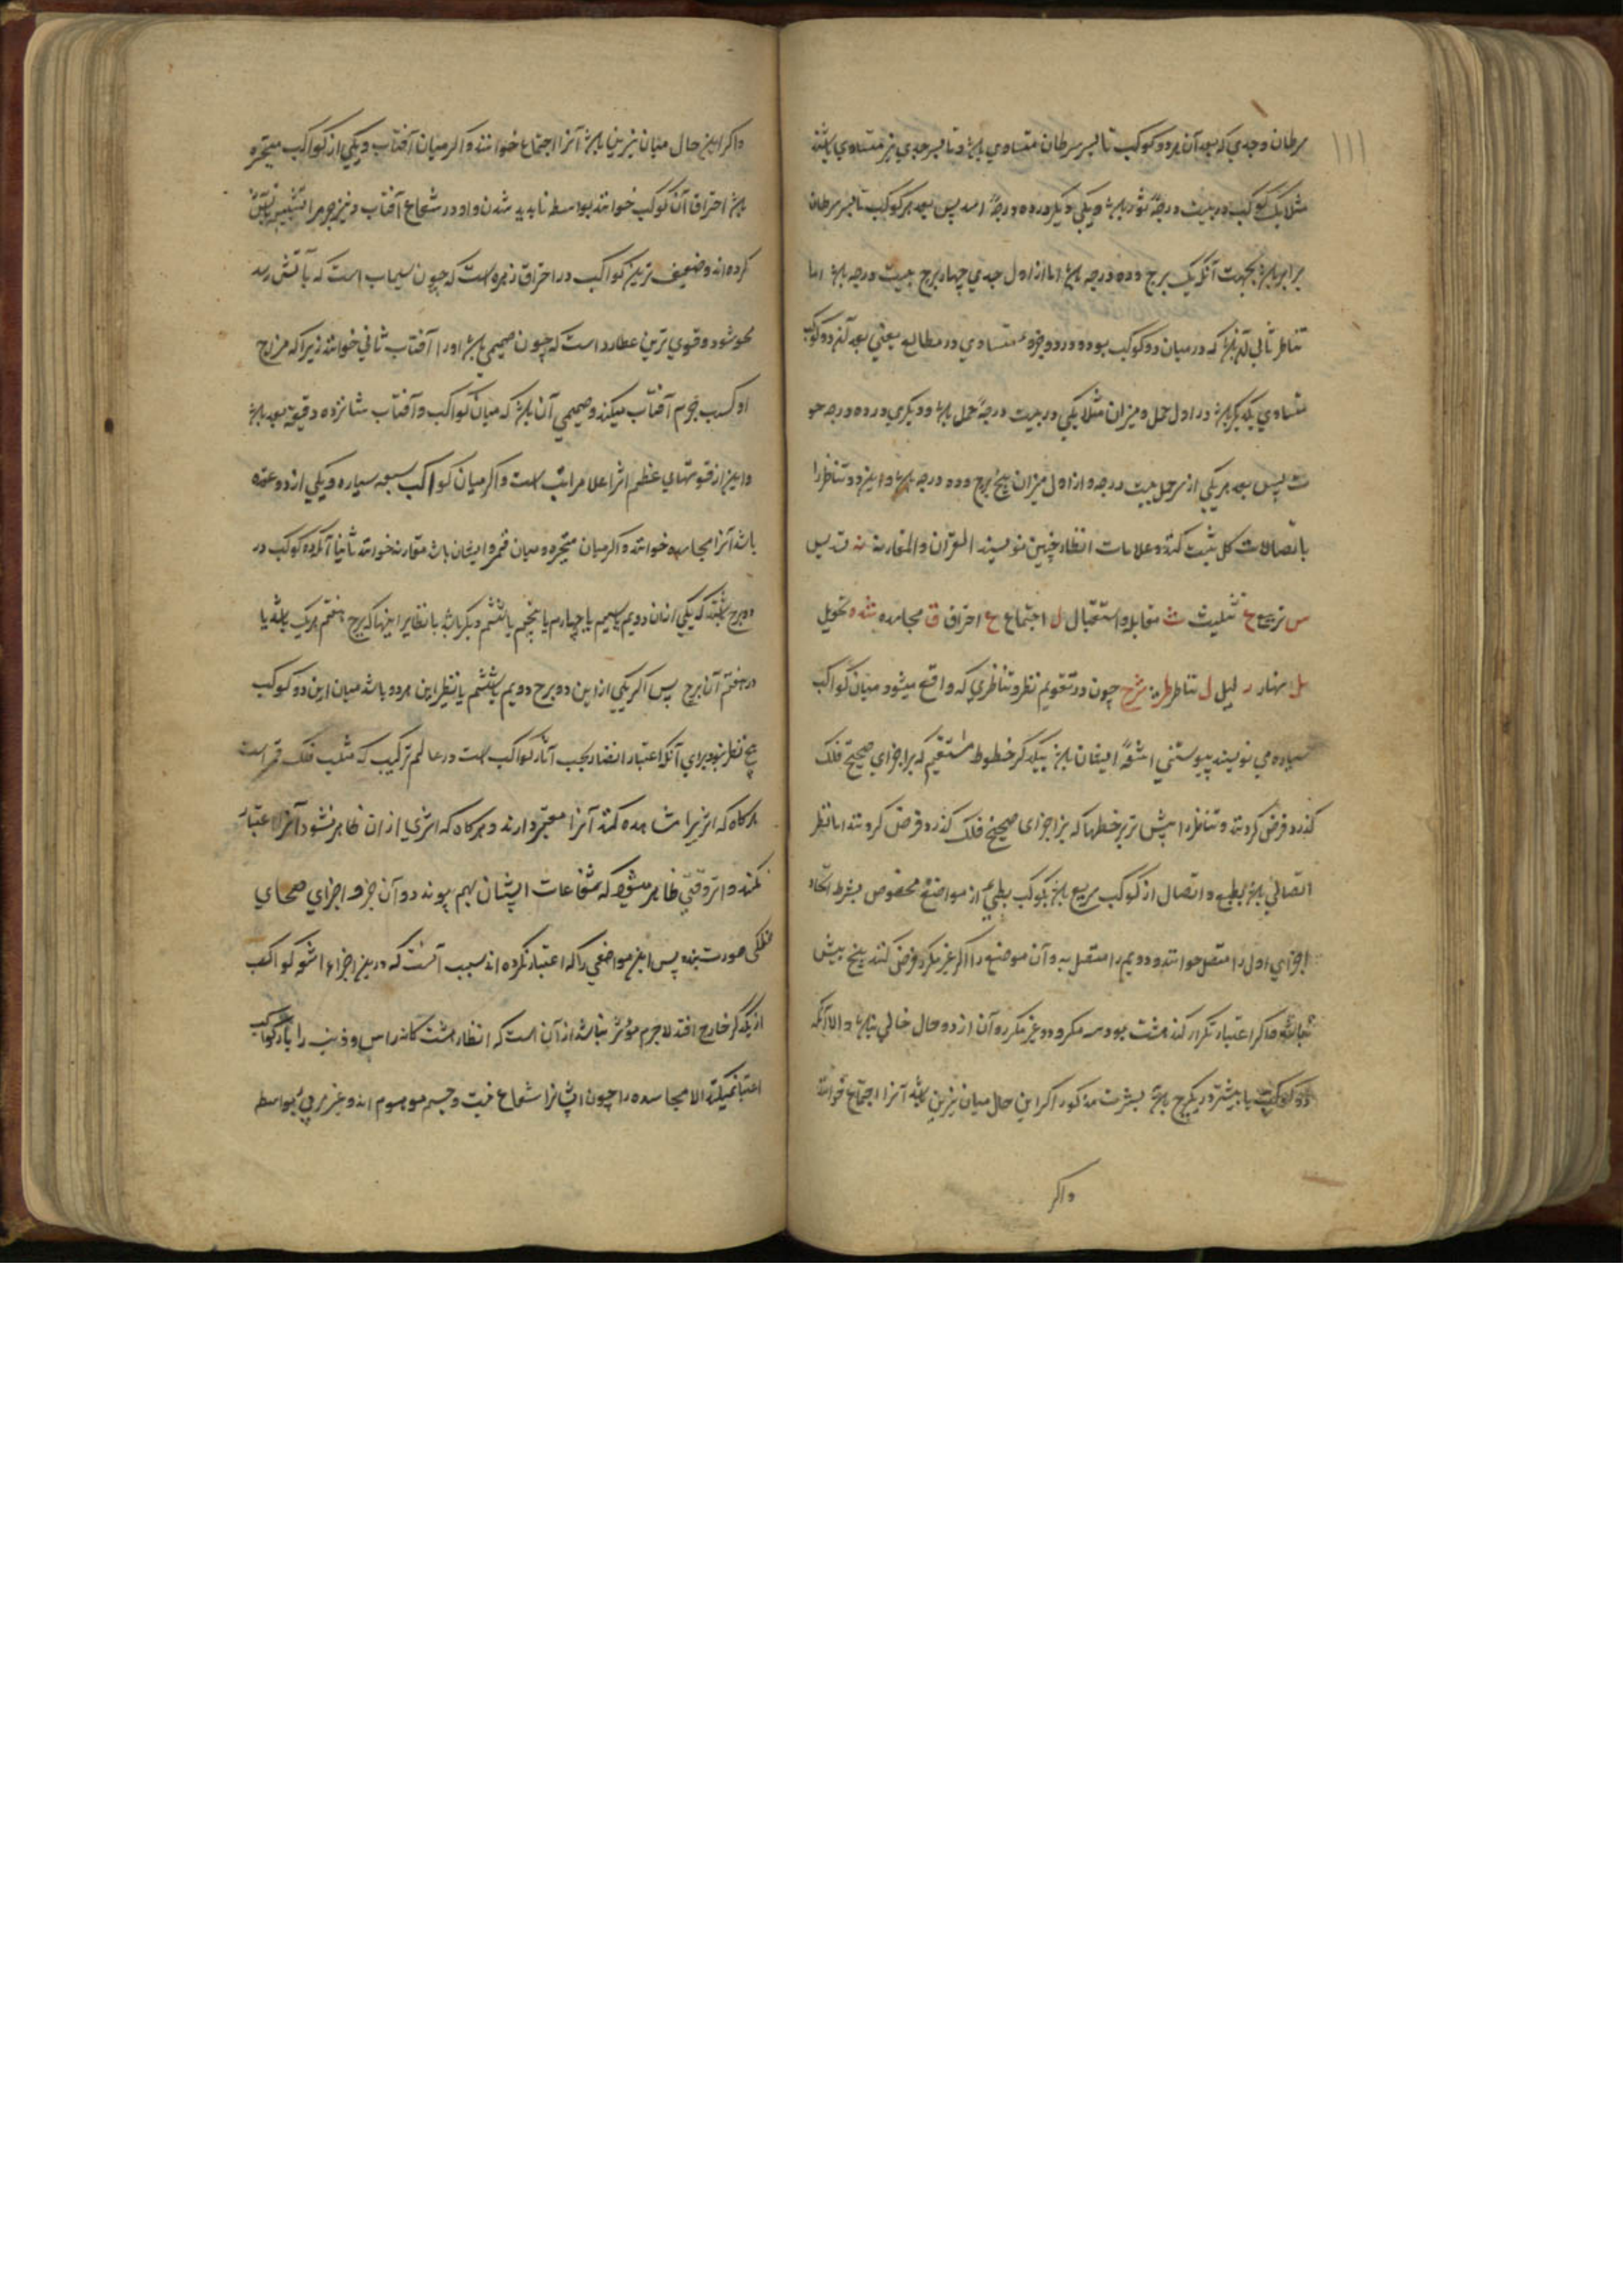 سرطان و جدی که بعد آن هر دو کوکب تا بسر سرطان متساوی باشد و تا بسر جدی نیز متساوی باشند
مثلا یک کوکب در بیست درجهٔ ثور باشد و یکی دیگر در ده درجهٔ اسد پس بعد هر کوکب تا بسر سرطان
برابر باشد بجهت آنکه یک برج و ده درجه باشد اما از اول جدی چهار برج بیست درجه باشد اما
تناظر ثانی آن باشد که در میان دو کوکب بود و در دو جزوء متساوی در مطالع یعنی بعد آن دو کوکب
متساوی یکدیگر باشد در اول حمل و میزان مثلا یکی در بیست درجهٔ حمل باشد و دیگری در ده درجه حو
ت پس بعد هر یکی از سر حمل بیست درجه و از اول میزان پنج برج و ده درجه باشد و این دو تناظر را
باتصالات کل ثبت کنند و علامات انظار چنین نویسند القران و المقارنة نه تسدیس
س تربیع ع تثلیث ث مقابله و استقبال ل اجتماع ع احتراق ق مجاسده ده تحویل
ل نهار ر لیل ل تناظر ظره شرح چون در تقویم نظر و تناظری که واقع میشود میان کواکب
سیاره می نویسند پیوستنی اشعهٔ ایشان باشد بیکدیگر خطوط مستقیم که بر اجزای صحیح فلک
گذرد فرض کردند و تناظر را پیش تر بر خطها که بر اجزای صحیح فلک گذرد فرض کردند اما نظر
اتصالی باشد بطبع و اتصال از کوکب سریع باشد بکوکب بطیء از مواضع مخصوص بشرط اتحاد
اجزای اول را متصل خوانند و دویم را متصل به و آن موضع را اگر غیر مکرر فرض کنند پنج بیش
نباشد و اگر اعتبار تکرار کنند هشت بود سه مکرر و دو غیر مکرر و آن از دو حال خالی نباشد والا آنکه
دو کوکب یا بیشتر در یک برج باشد بشرط مذکور اگر این حال میان نیرین باشد آنرا اجتماع خوانند
واکر
واکر این حال میان نیرین باشد آنرا اجتماع خوانند و اگر میان آفتاب و یکی از کواکب متحیره
باشد احتراق آن کوکب خوانند بواسطه ناپدید شدن او در شعاع آفتاب و نیز جرم
کرده اند و ضعیف ترین کواکب در احتراق زهره است که چون سیماب است که بآتش رسد
محو شود و قوی ترین عطارد است که چون صمیمی باشد او را آفتاب ثانی خوانند زیرا که مزاج
او کسب جرم آفتاب میکند و صمیمی آن باشد که میان کواکب و آفتاب شانزده دقیقه بعد باشد
و این از قوتهای عظیم اثر اعلا مراتب است و اگر میان کواکب سبعه سیاره و یکی از دو عقده
باشد آنرا مجاسده خوانند و اگر میان متحیره و میان قمر و ایشان باشد مقارنه خوانند ثانیا آنکه دو کوکب در
دو برج باشند که یکی از آن دویم یا سیم یا چهارم یا پنجم یا ششم دیگر باشد یا نظایر اینها که برج هفتم هر یک باشد یا
در هفتم آن برج پس اگر یکی از این دو برج دویم یا ششم یا نظیر این هر دو باشد میان این دو کوکب
هیچ نظر نبود برای آنکه اعتبار انظار بحسب آثار کواکب است در عالم ترکیب که مثلب فلک قمر است
هرگاه که اثری را مشاهده کنند آنرا معتبر دارند و هرگاه که اثری از ان ظاهر نشود آنرا اعتبار
نکنند و اثر وقتی ظاهر میشود که شعاعات ایشان بهم پیوندد و آن جز و اجزای صحاحی
فلکی صورت نبندد پس این مواضعی را که اعتبار نکرده اند بسبب آنست که درین اجزاء اشعهٔ کواکب
از یکدیگر خارج افتد لاجرم مؤثر نباشد از آن است که انظار هشت کانه راس و ذنب را با دیگر کواکب
اعتبار نمیکنند الا مجاسده را چون ایشانرا شعاع نیست و جسم موهوم اند و غیر مرئی بواسطه